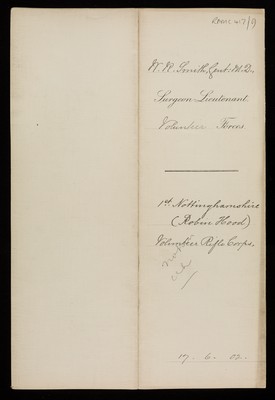 W. R. Smith, Gent: M.D.
Surgeon-Lieutenant
Volunteer Forces
1st Nottinghamshire
(Robin Hood)
Volunteer Rifle Corps.
17. 6. 02.